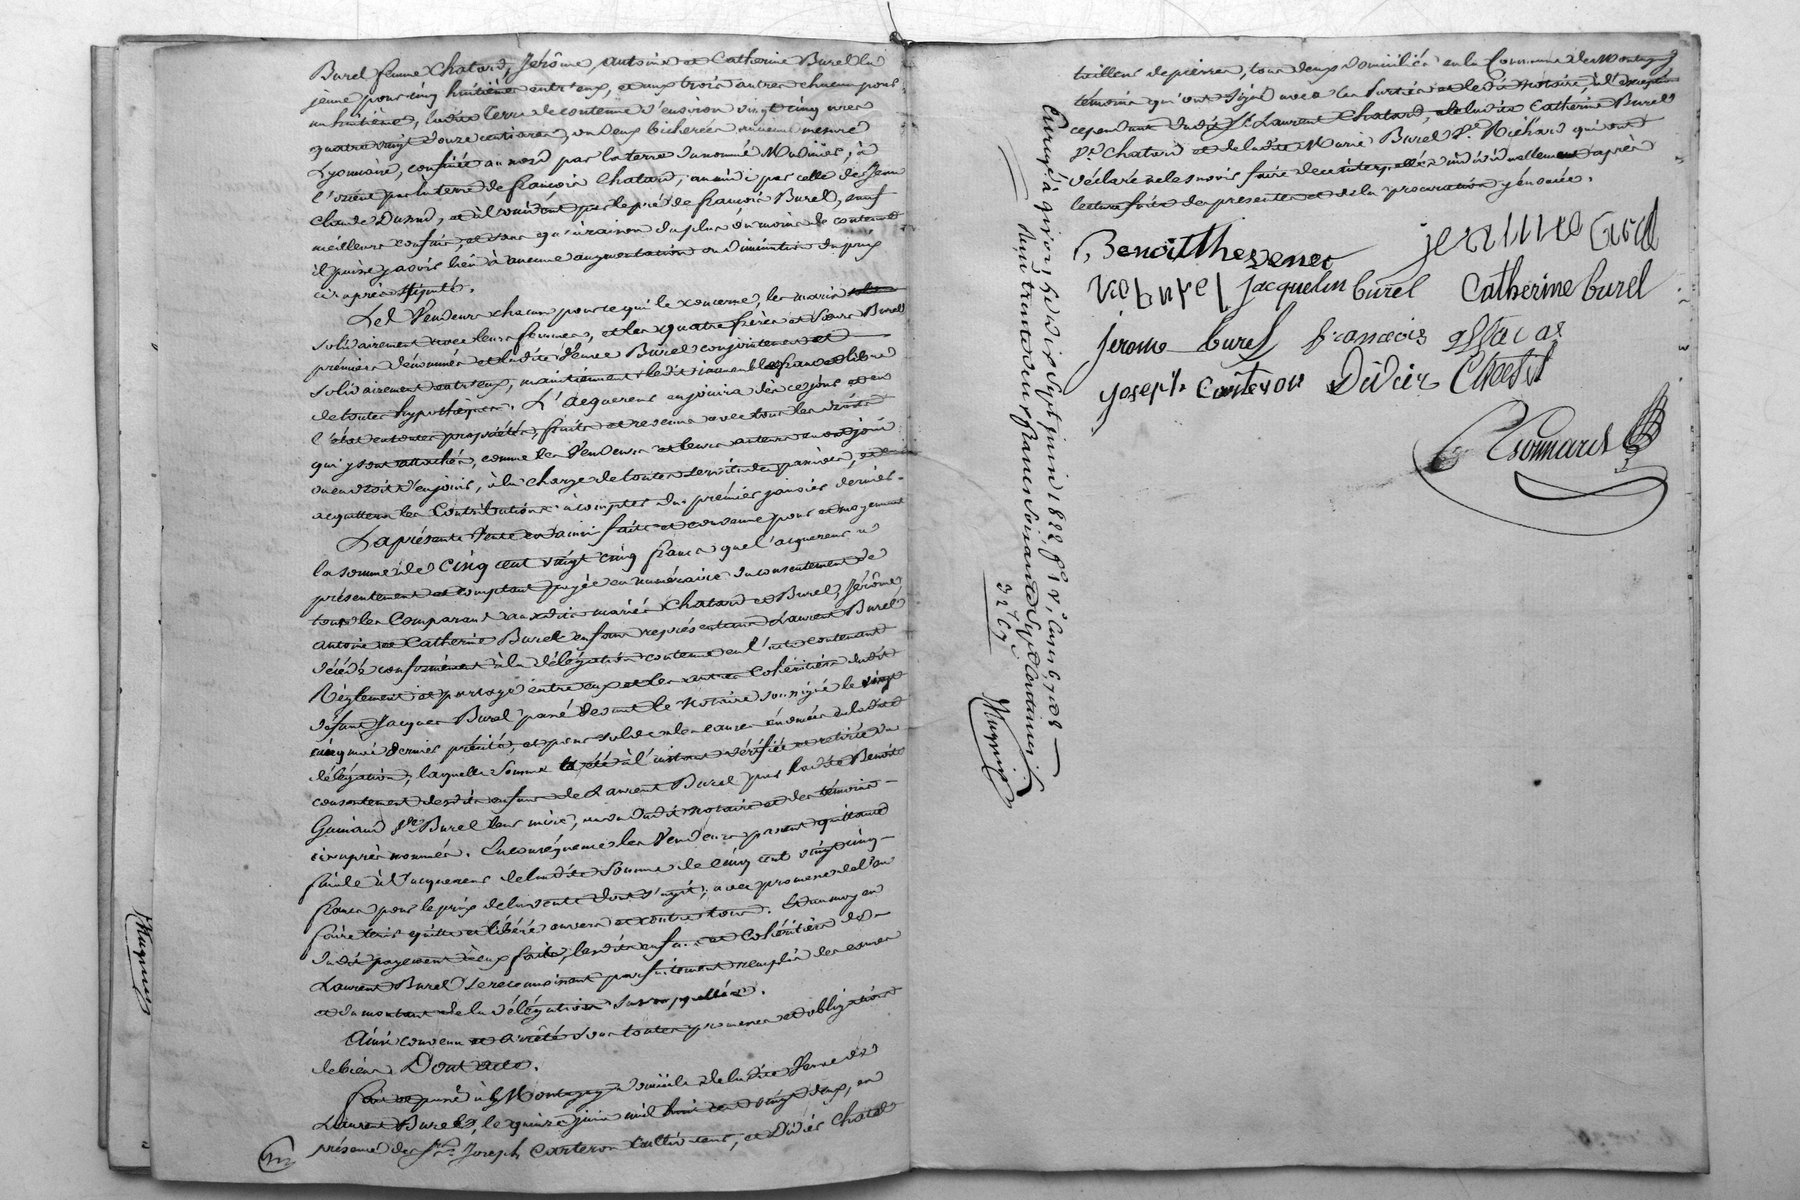 Burel femme Chatard, Jérôme, Antoine et Catherine Burel la
jeune pour cinq huitièmes entr'eux, et aux trois autres chacun pour
un huitième, ladite Terre de contenue d'environ vingt cinq ares
quatre vingt douze centiares, ou deux bicherées ancienne mesure
Lyonnaise, confinée au nord par la terre du nommé Mulinier, à
l'orient par la terre de françois Chatard, au midi par celle de Jean
Claude Durand, et à l'occident par le pré de françois Burel, sauf
meilleurs confins, et sans qu'à raison du plus du moins de contenue
il puisse y avoir lieu à aucune augmentation ou diminution du prix
ci après stipulé.
Les Vendeurs chacun pour ce qui le concerne, les maris
solidairement avec leurs femmes, et les quatre frères et Sœurs Burel
premiers dénommés et ladite Veuve Burel conjointement et
solidairement entr'eux, maintiennent ledit immeuble franc et libre
de toutes hypothèques. L'acquereur en jouira dès ce jour et en
l'état en toute propriété, fruits et revenus avec tous les droits
qui y sont attachés, comme les Vendeurs et leurs auteurs en ont joui
ou eu droit d'en jouir, à la charge de toutes servitudes passives, et en
acquittera les Contributions à compter du premier janvier dernier.
La présente Vente est ainsi faite et convenue pour et moyennant
la somme de Cinq cent vingt cinq francs que l'acquereur a
présentement et comptant payée en numéraire du consentement de
tous les Comparants auxdits mariés Chatard et Burel, Jérôme
Antoine et Catherine Burel enfans représentans Laurent Burel
décédé conformément à la délégation contenue en l'acte contenant
Règlement et partage entre eux et les autres Cohéritiers dudit
défunt Jacques Burel passé devant le Notaire soussigné le vingt
cinq mai dernier précité, et pour solde des causes énoncées en ladite
délégation, laquelle somme a été à l'instant vérifiée et retirée du
consentement desdits enfans de Laurent Burel par ladite Benoite
Guinand Ve Burel leur mère, au vu dudit notaire et des témoins
ci-après nommés. En conséquence les Vendeurs passent quittance
finale à l'acquereur de ladite Somme de cinq cent vingt cinq
francs pour le prix de la vente dont s'agit, avec promesse de l'en
faire tenir quitte et libéré envers et contre tous. Et au moyen
dudit payement à eux fait, lesdits enfans et Cohéritiers de
Laurent Burel se reconnaissent parfaitement remplis des causes
et du montant de la délégation susrappellée.
Ainsi convenu et arrêté sous toutes promesses et obligations
de biens. Dont acte.
fait et passé à Montagny domicile de ladite Veuve de
Laurent Burel, le quinze juin mil huit cent vingt deux, en
présence des Srs Joseph Couteron cultivateur, et Didier Chatel
tailleur de pierres, tous deux domiciliés en la Commune de Montagny
témoins qui ont signé avec les Parties et ledit notaire, à l'exception
cependant dudit St Laurent Chatard, de ladite Catherine Burel
Fe Chatard et de ladite Marie Burel Fe Richard qui ont
déclaré ne le savoir faire de ce interpellés individuellement après
lecture faite des présentes et de la procuration y énoncée.
Benoit Thevenet
Jacquelin burel Catherine burel
jerome burel françois
joseph couteron Didier Chatel
Enregé à givors, le dix sept juin 1822, f° 1 v°, Cases 6, 7 et 8
Reçu trente deux francs soixante sept centimes
32f 67c